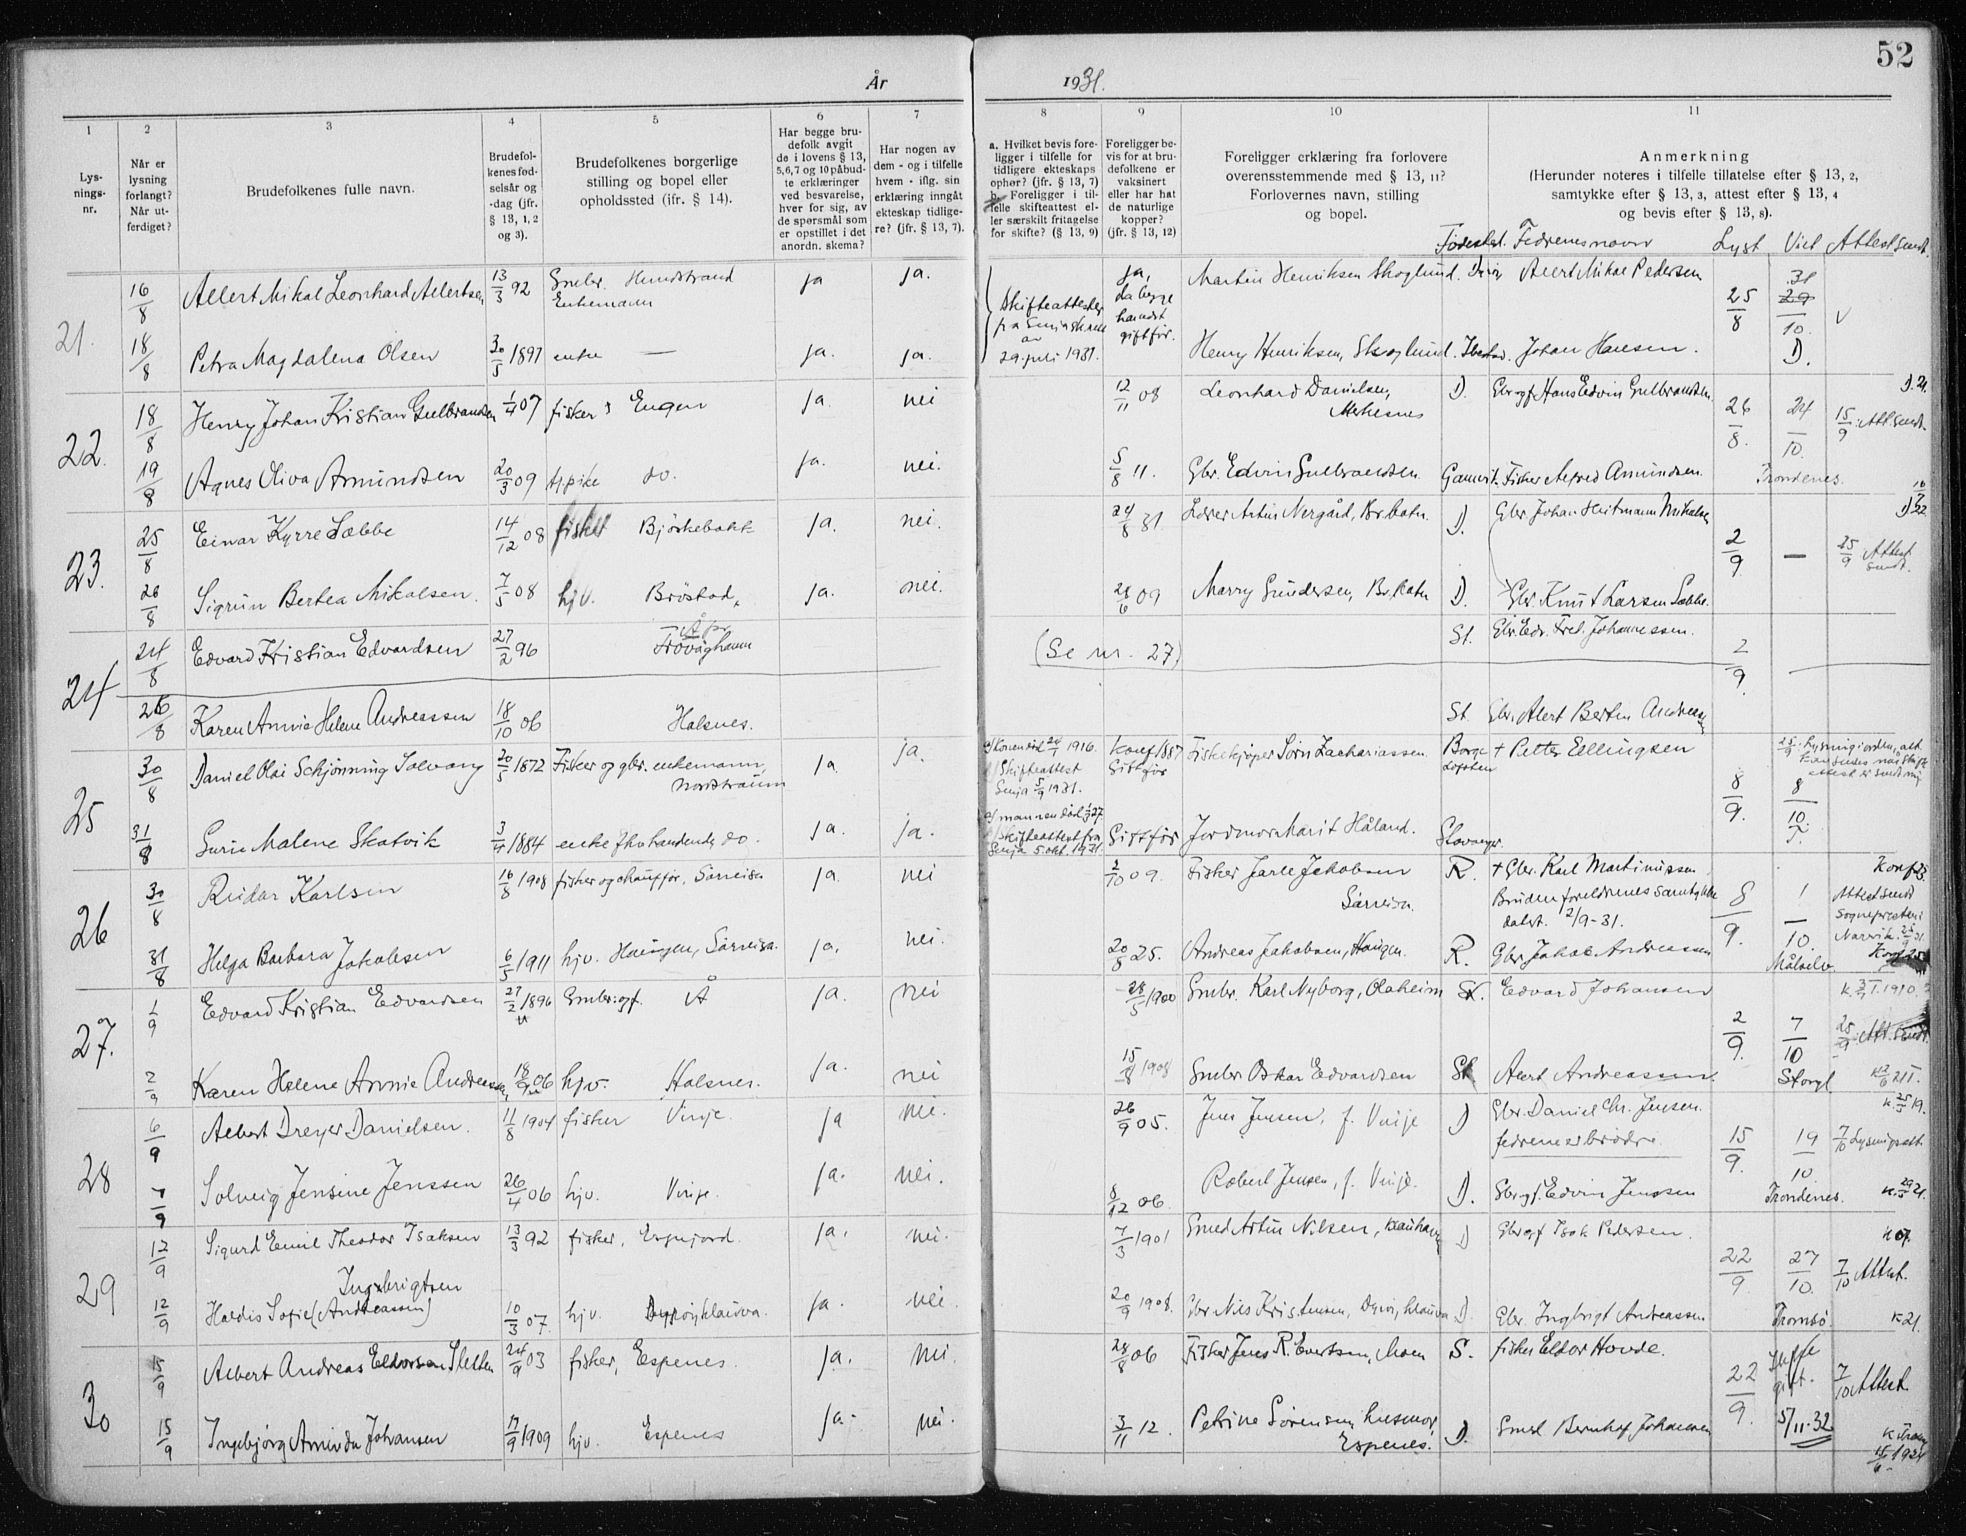 52
År 1931.
1 2 3 4 5 6 7 8 9 10 11
Lys-
nings-
nr.
Når er
lysning
forlangt?
Når ut-
ferdiget?
Brudefolkenes fulle navn.
Brudefol-
kenes fød-
selsår og
-dag (jfr.
§ 13, 1, 2
og 3).
Brudefolkenes borgerlige
stilling og bopel eller
opholdssted (jfr. § 14).
Har begge bru-
defolk avgit
de i lovens § 13,
5, 6, 7 og 10 påbud-
te erklæringer
ved besvarelse,
hver for sig, av
de spørsmål som
er opstillet i det
anordn. skema?
Har nogen av
dem - og i tilfelle
hvem - iflg. sin
erklæring inngått
ekteskap tidlige-
re? (jfr. § 13, 7).
a. Hvilket bevis fore-
ligger i tilfelle for
tidligere ekteskaps
ophør? (jfr. § 13, 7)
b. Foreligger i til-
felle skifteattest el-
ler særskilt fritagelse
for skifte? (§ 13, 9)
Foreligger be-
vis for at bru-
defolkene er
vaksinert
eller har hat
de naturlige
kopper?
(jfr. § 13, 12)
Foreligger erklæring fra forlovere
overensstemmende med § 13, 11?
Forlovernes navn, stilling
og bopel.
Anmerkning
(Herunder noteres i tilfelle tillatelse efter § 13, 2,
samtykke efter § 13, 3, attest efter § 13, 4
og bevis efter § 13, 8).
Fødested. Fedrenes navn Lyst Viet Attest sendt.
21. 16/8 Allert Mikal Leonhard Allertsen 13/3 92 Gmbr. Hundstrand ja ja. Martin Henriksen Skoglund. Allert Mikal Pedersen 31
Enkemann
Skifteattester
fra Senja
av
29 juli 1931.
ja,
begge
giftför.
25/8 29/10.
18/8 Petra Magdalena Olsen 30/5 1897 enke — ja. ja. Henry Henriksen, Skoglund. Ibestad. Johan Hansen. D.
22. 18/8 Henry Johan Kristian Gulbrandsen 1/4 07 fisker Eugen ja. nei 12/11 08 Leonhard Danielsen, D. Gbr Hans Edvin Gulbrandsen.
26/8. 24/10. 15/9. Att. sendt.
19/8 Agnes Oliva Amundsen 20/3 09 tj.pike do. ja. nei. 5/8 11. Gbr. Edvin Gulbrandsen Gamvik. Fisker Alfred Amundsen. Trondenes.
23. 25/8 Einar Kyrre Sæbbe 14/12 08 fisker Bjørkebakk ja. nei. 24/8 31 Lærer Artur Nergård, Br.botn. D. Gbr Johan Hitmann Mikalsen
2/9. — 25/9 Attest sendt.
26/8 Sigrun Bertea Mikalsen. 7/5 08 hjv. Brøstad, ja. nei. 28/6 09 Marry Gundersen, Br.botn D. Gbr. Knut Larsen Sæbbe.
24 24/8 Edvard Kristian Edvardsen 27/2 96 Trovåghavn (Se nr. 27) St. Gbr. Edv. Fred. Johannessen.
2/9. —
26/8 Karen Annie Helene Andreassen 18/10 06 Halsnes. St. Gbr. Alert Bertin Andreassen
25 30/8 Daniel Olai Schjønning Solvang 20/5 1872 Fisker og gbr. enkemann, ja. ja. a/ Konen död 24/1 1916. konf 1887 Fiskekjøper Sørn Zachariassen Borge + Petter Ellingsen
Nordstraum
Skifteattest
Senja 5/9 1931.
Giftför
Lofoten
8/9. 8/10.
31/8 Gurie Malene Skatvik 3/4 1884 enke f. hv. handende do. ja. ja. a/ mannen död 1/3 27. Skifteattest fra Senja 5. okt. 1931. Giftför Jordmor Marit Håland. Stavanger.
26 30/8 Reidar Karlsen 16/8 1908 fisker og chauffør, Sørreisa ja. nei 2/10 09. Fisker Jarle Jakobsen R. + Gbr. Karl Martinussen
Sørreisa. Bruden foreldrenes samtykke
datert. 2/9-31.
8/9. 1/10. Attest sendt
Sogneprestn i
Narvik. 25/9 31.
31/8 Helga Barbara Jakobsen 6/5 1911 hjv. Haugen, Sørreisa. ja. nei. 20/8 25. Andreas Jakobsen, Haugen. R. Gbr. Jakob Andreassen Målselv.
27. 1/9 Edvard Kristian Edvardsen 27/2 1896 Gmbr. ogf. Å ja. nei 28/5 1900 Gmbr. Karl Nyborg, Olaheim St. Edvard Johansen
2/9. 7/10 25/9 Att. sendt.
2/9 Karen Helene Annie Andreassen 18/9 06 hjv. Halsnes. ja. nei 15/8 1908 Gmbr Oskar Edvardsen St. Alert Andreassen. Storgt
28 6/9 Albert Dreyer Danielsen. 11/8 1904 fisker Vinje. ja nei. 26/9 05. Jens Jensen, f. Vinje D Gbr. Daniel Chr. Jensen.
fedrene er brødre.
15/9. 19/10 7/10 Lysningsatt.
7/9 Solveig Jensine Jenssen 26/4 06 hjv. Vinje. ja. nei. 8/12 06. Robert Jensen, f. Vinje. D. Gbr ogf. Edvin Jenssen Trondenes.
29 12/9 Sigurd Emil Theodor Isaksen 13/3 92 fisker, Espejord. ja. nei. 7/3 1901 Smed Artur Nilsen, D Gbr ogf Isak Pedersen. k 07.
22/9. 27/10. 7/10 Attest.
Ingebrigtsen
12/9 Haldis Sofie (Andreassen) 10/3 07. hjv. Dyrøyklauva. ja. nei. 20/9 1908. Gbr Nils Kristensen, Dyrøy, klauva D. Gbr. Ingbrigt Andreassen Tromsö. k 21.
30 15/9 Albert Andreas Eldorsen Sletten 24/9 03 fisker, Espenes. ja. nei. 28/8 06 Fisker Jens R. Evertsen, Moen S. fisker Eldor Hovde. Ikke
gift.
22/9. 7/10 Attest.
15/9 Ingebjørg Aminda Johansen 17/9 1909 hjv. Espenes ja. nei. 3/11 12. Petrine Sørensen, husmor D. Smed Bernhof Johansen 5/11-32
Espenes.
15/6 1924